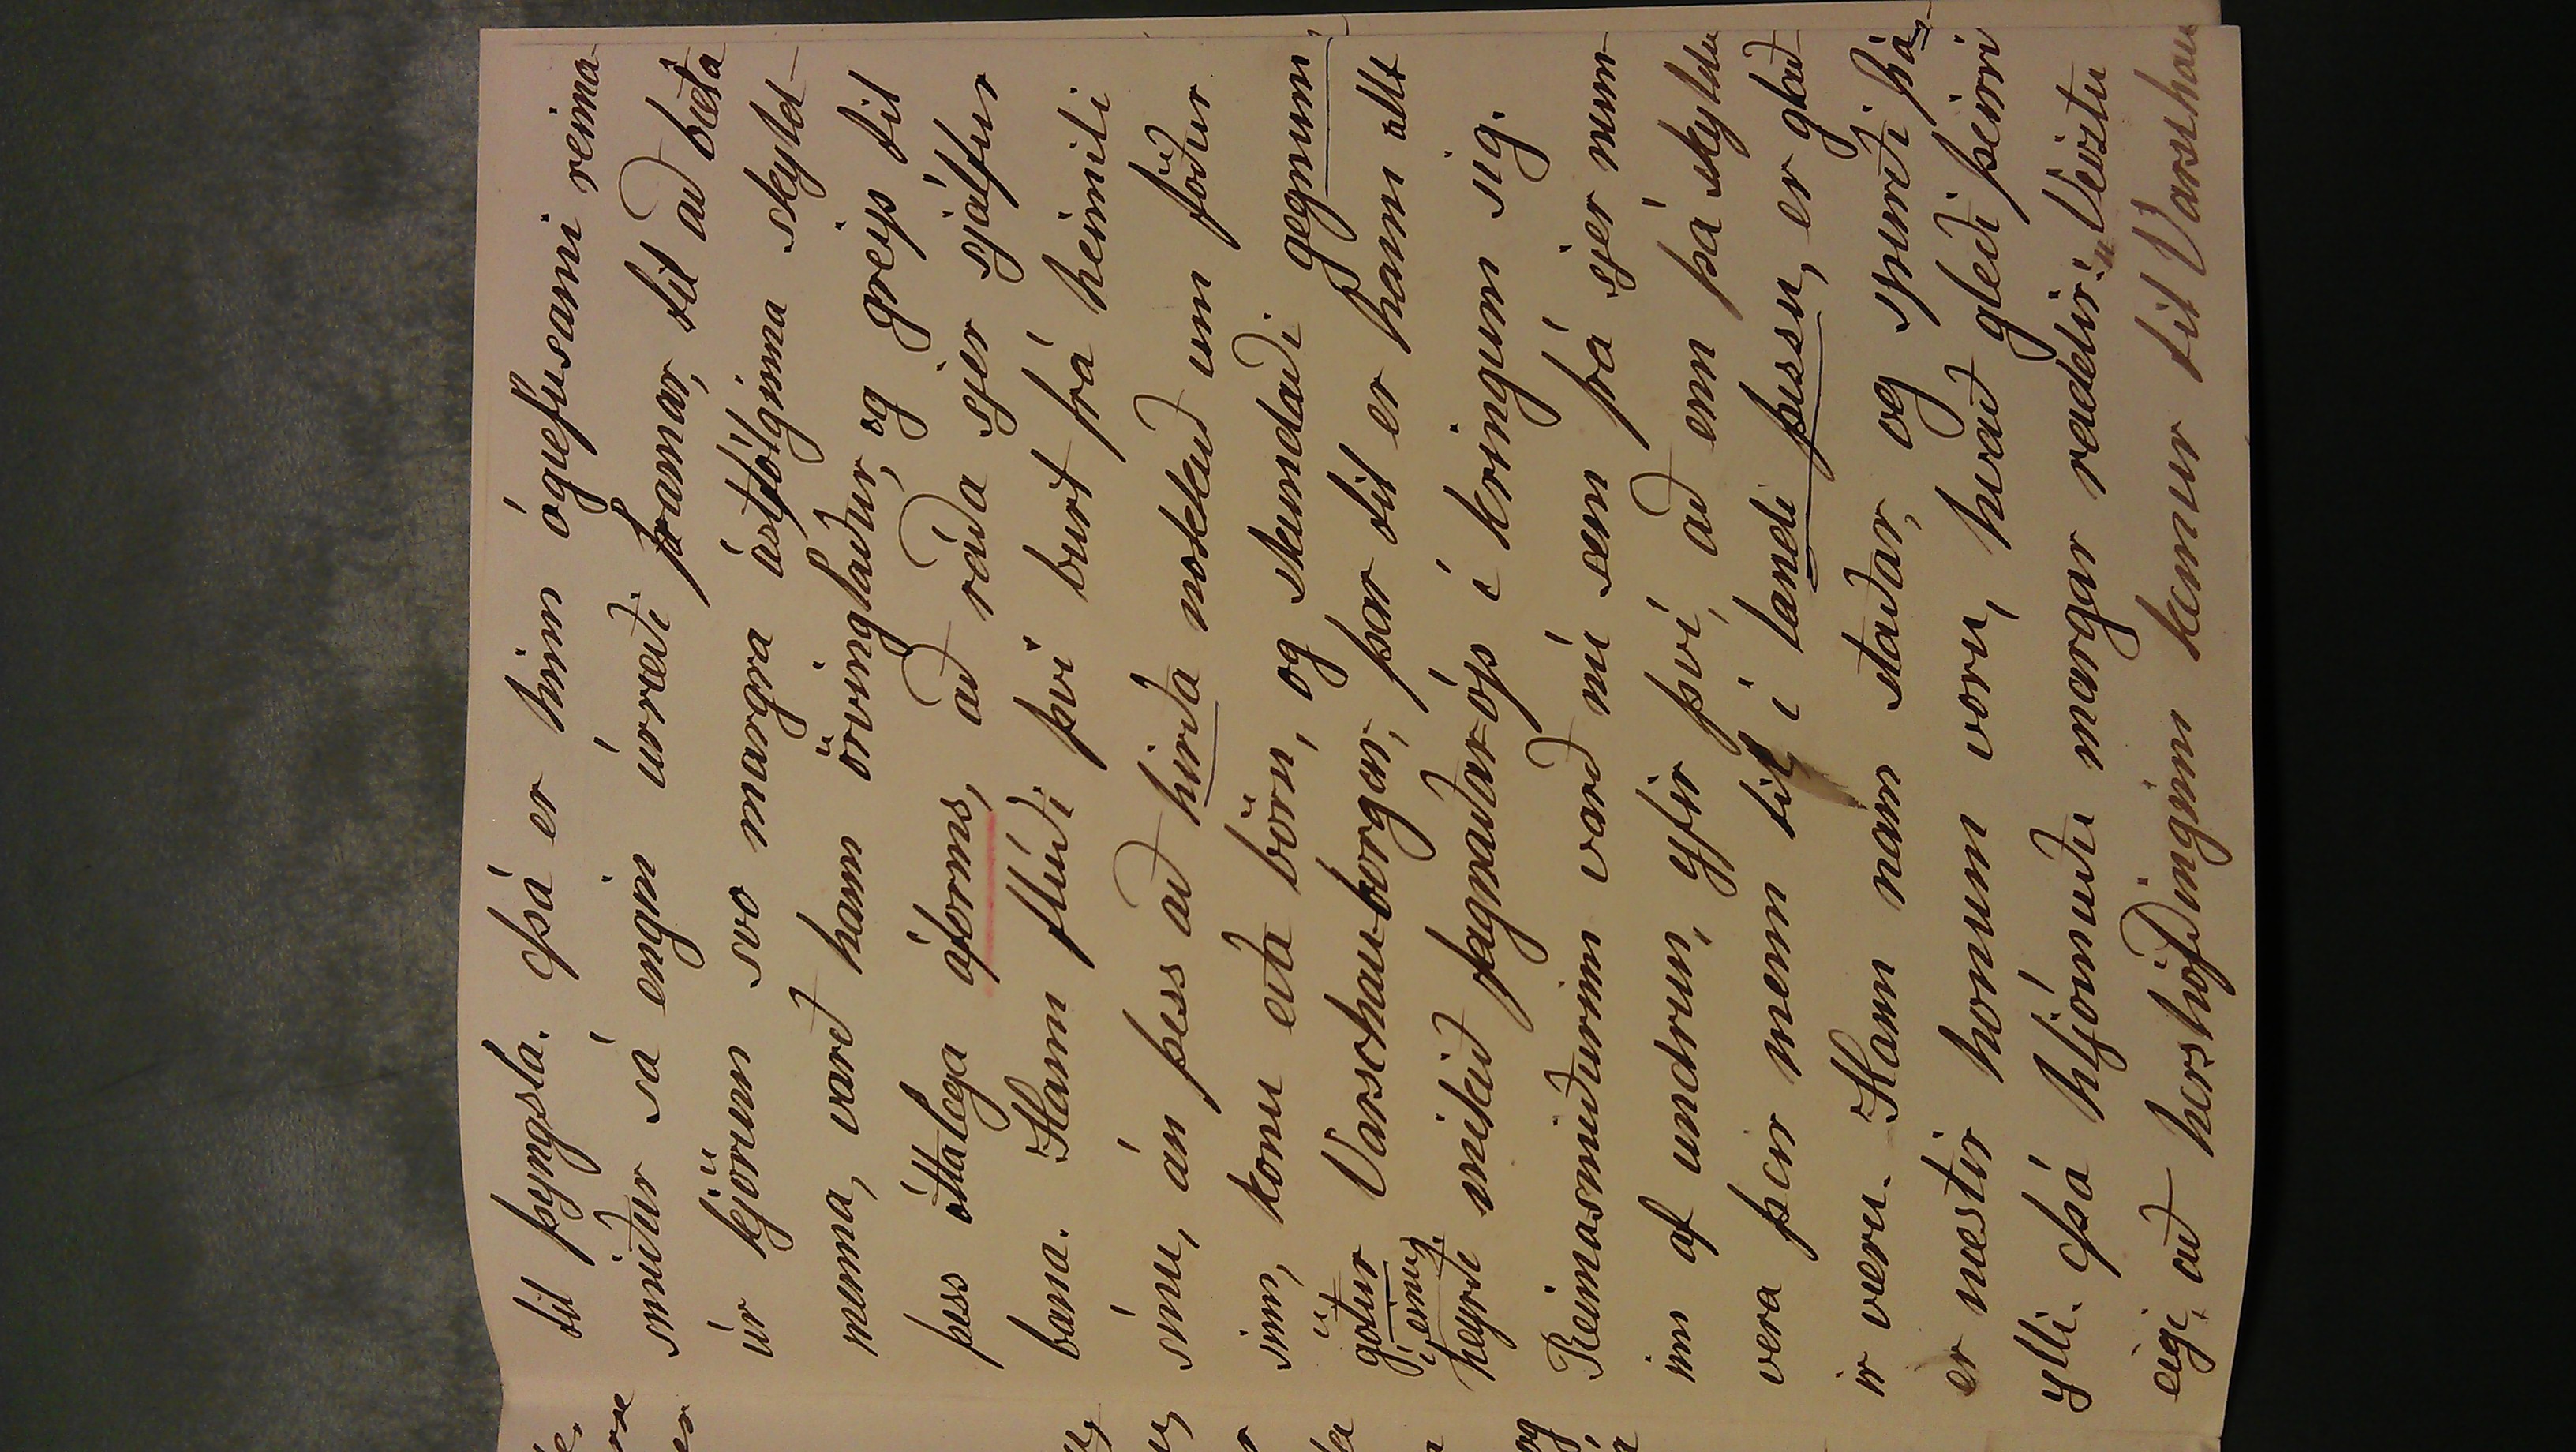 til þyngsla. Þá er hinn ógæfusami reima-
smiður sá engin úrræði framar, til að bæta
úr kjörum svo margra ástfólginna skyld-
menna, varð hann örvinglaður, og greip til
þess óttalega áforms, að ráða sjer sjálfur
bana. Hann flúði því burt frá heimili
sínu, án þess að hirða nokkuð um föður
sinn, konu eða börn, og skundaði gegnum
götur Varschau-borgar; þar til er hann allt
í einug.
heyrði mikið fagnaðar-óp í kringum sig.
Reimasmiðurinn varð nú sem frá sjer num-
inn af undrun, yfir því, að enn þá skyldu
vera þeir menn til í landi þessu, er glað-
ir væru. Hann nam staðar, og spurði þá-
er næstir honum voru, hvað gleði þeirri
ylli. Þá hljómuðu margar raddir: „Veiztu
eigi, að hershöfðinginn kemur til Varschau